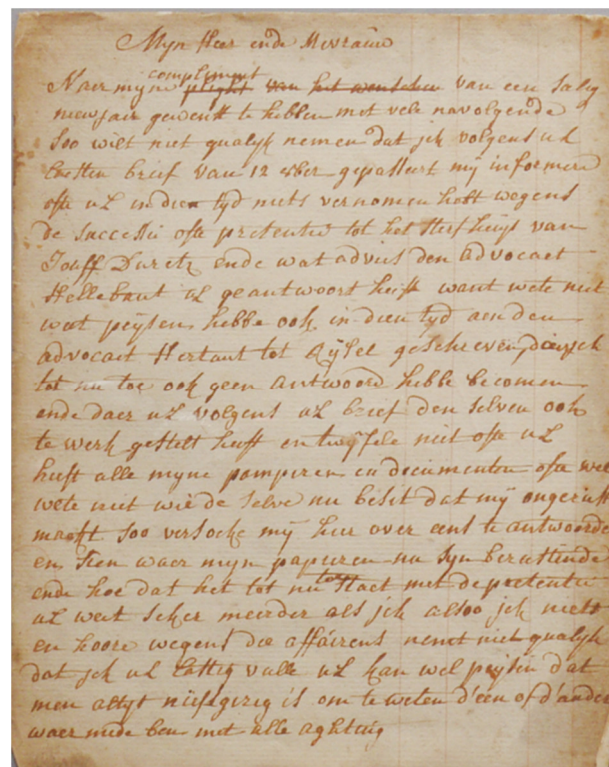 Mijn Heer ende Mevrauw
compliment
Naer mijne plight van het wenschen van een salig
niewjaer gewenst te hebben met vele navolgende
soo wilt niet qualijk nemen dat jck volgens ul
lesten brief van 12 xber gepasseert mij informere
ofte ul indien tijd niets vernomen heft wegens
de successie ofte pretentie tot het sterfhuijs van
Jouff Duretz ende wat advies den advocaet
Hellebaut ul geantwoort heift want wete niet
wat peijsen hebbe ook in dien tijd aen den
advocaet Hertaut tot Rijsel geschreven, jck
tot nu toe ook geen antwoord hebbe becomen
ende daer ul volgens ul brief den selven ook
te werk gestelt heeft en twijfele niet ofte ul
heeft alle mijne pampieren en documenten ofte wel
wete niet wie de selve nu besit dat mij ongerust
maekt soo versoeke mij hier over eens te antwoorde
en sien waer mijn papieren nu sijn berustende
ende hoe dat het tot nu toe staet met de pretentie
ul weet seker meerder als jck alsoo jck niets
en hoore wegens die affairens nemt niet qualijk
dat jck ul lastig valle ul kan wel peijsen dat
men altijt niefsgirig is om te weten d'een of d'ander
waer mede ben met alle aghting